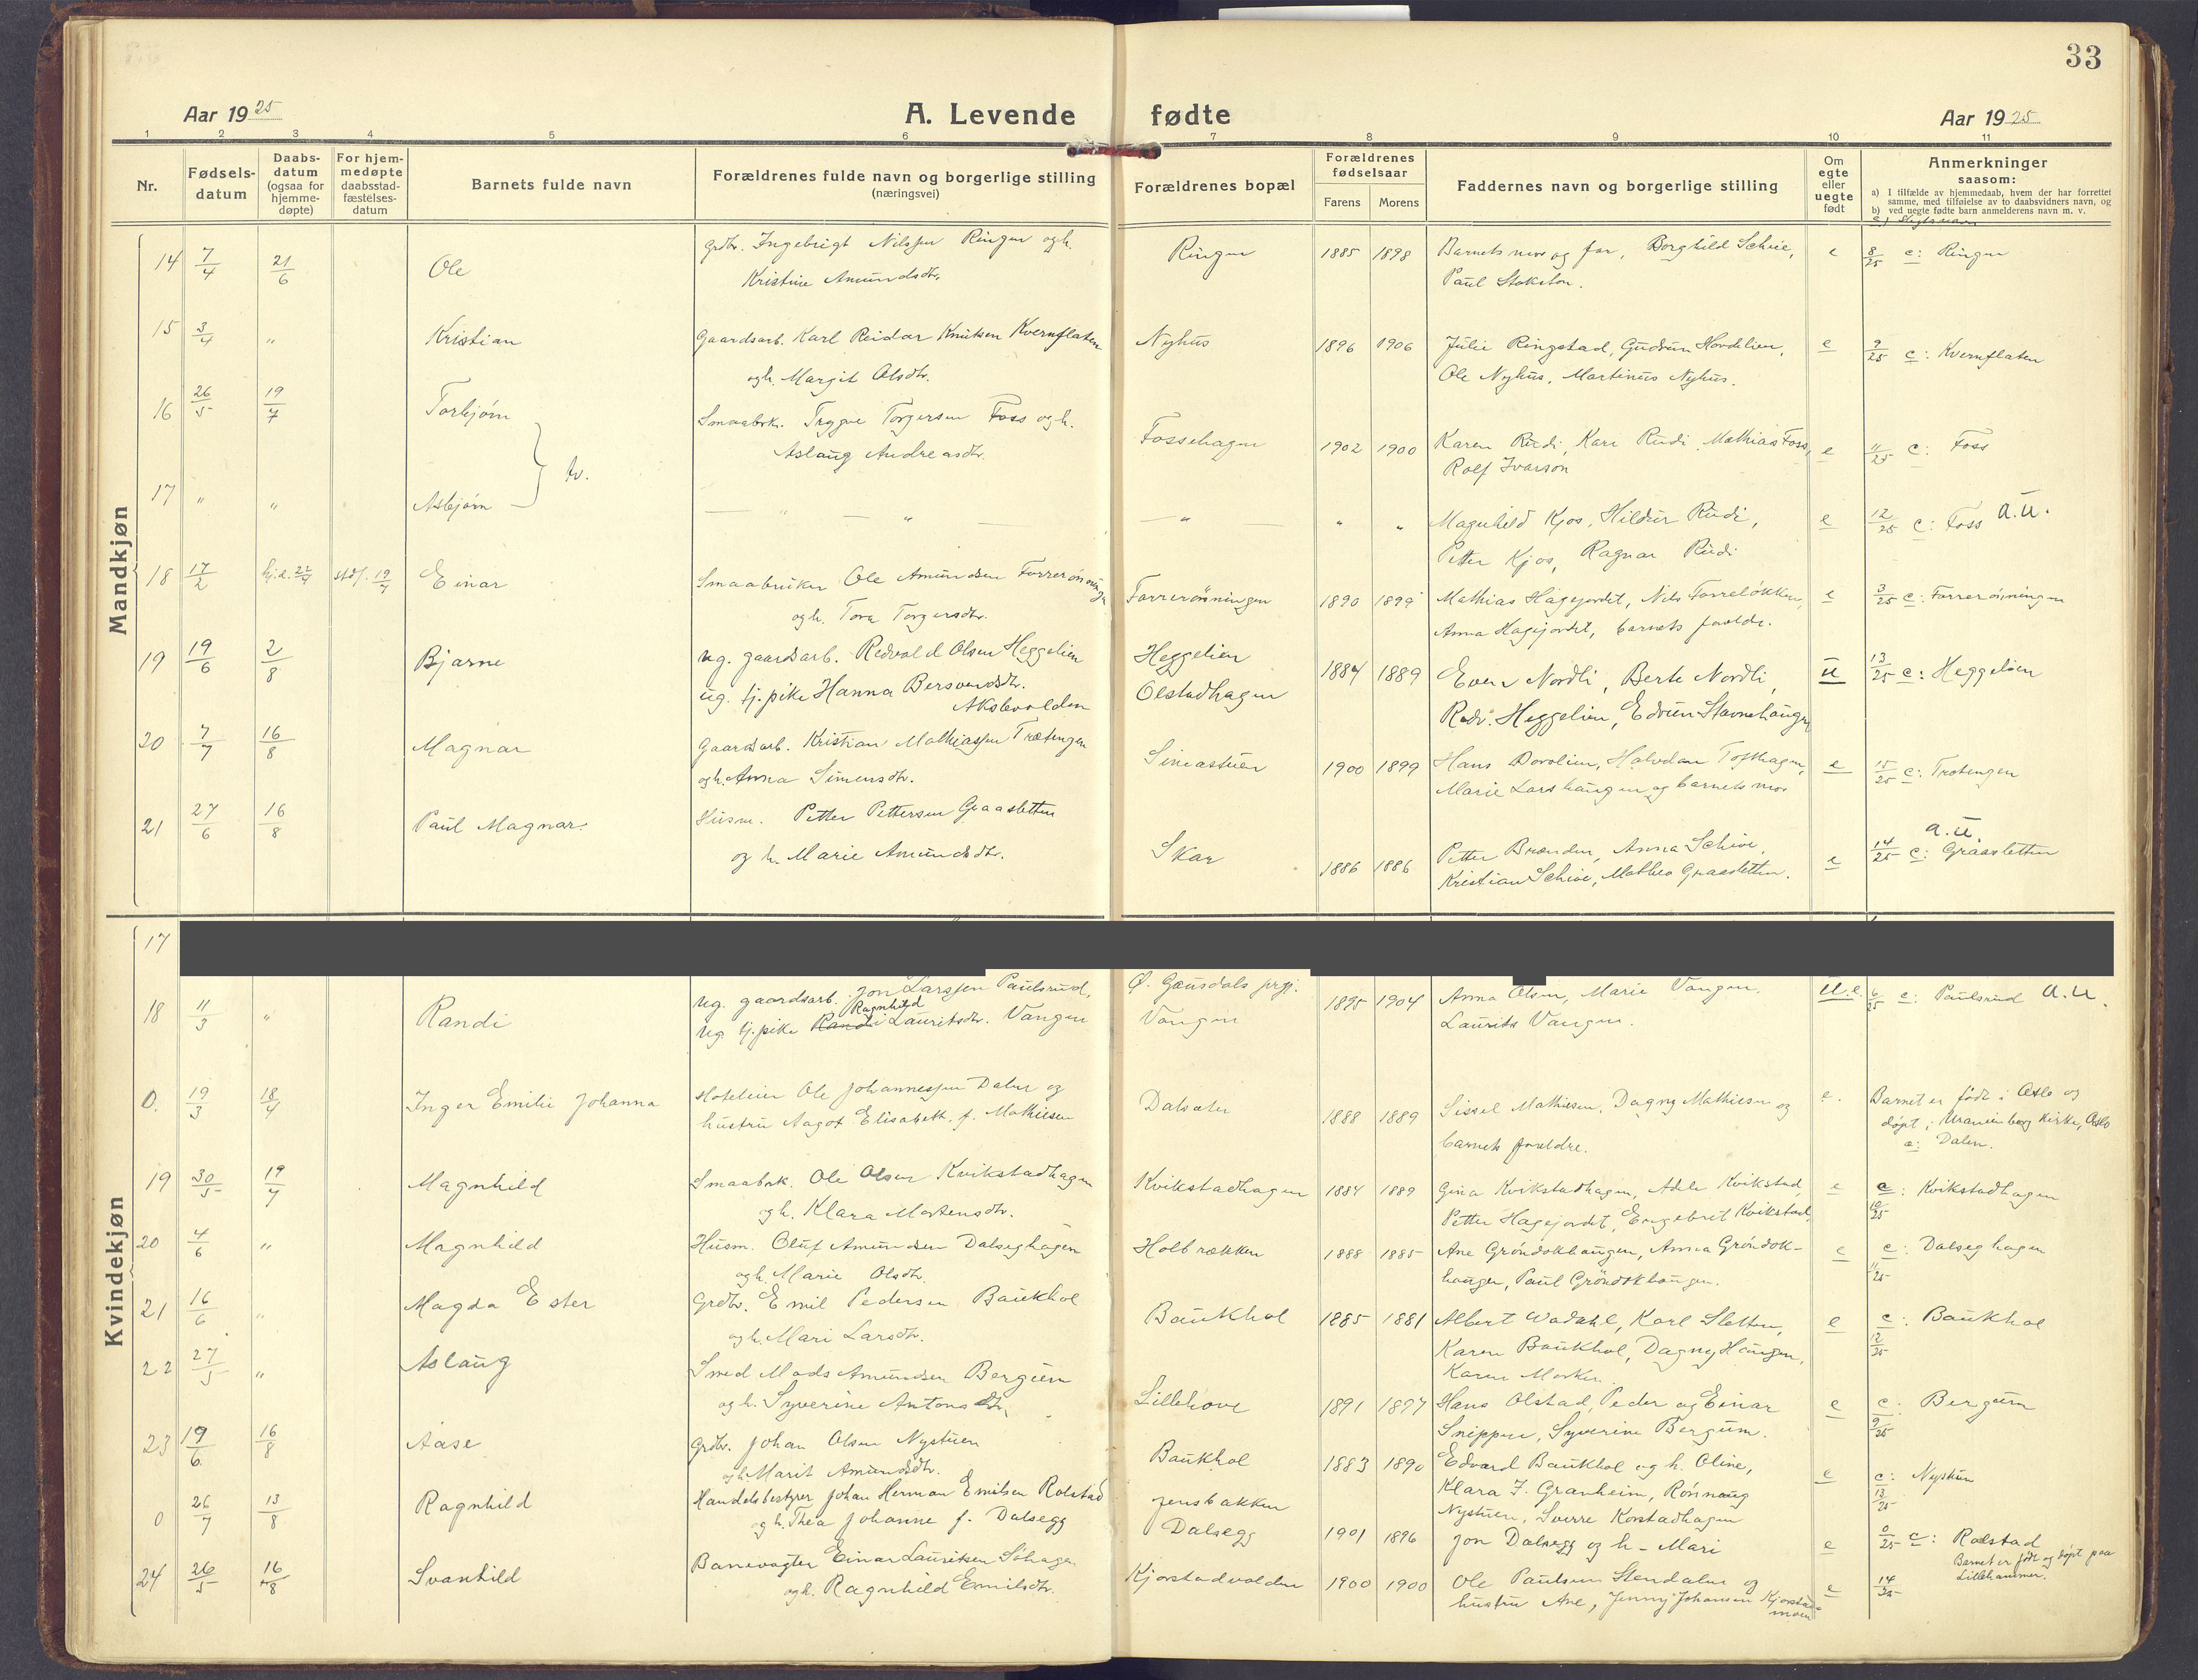 33
Aar 1925
A. Levende fødte
Aar 1925
1 2 3 4 5 6 7 8 9 10 11
Nr.
Fødsels-
datum
Daabs-
datum
(ogsaa for
hjemme-
døpte)
For hjem-
medøpte
daabsstad-
fæstelses-
datum
Barnets fulde navn
Forældrenes fulde navn og borgerlige stilling
(næringsvei)
Forældrenes bopæl
Forældrenes
fødselsaar
Farens Morens
Faddernes navn og borgerlige stilling
Om
egte
eller
uegte
født
Anmerkninger
saasom:
a) I tilfælde av hjemmedaab, hvem der har forrettet
samme, med tilføielse av to daabsvidners navn, og
b) ved uegte fødte barn anmelderens navn m. v.
c) Slegtsnavn
Mandkjøn
14 7/4 21/6 Ole Grdbr. Ingebrigt Nilssen Ringen og h. Ringen 1885 1898 Barnets mor og far, Borghild Schive, e 8/25 c: Ringen
Kristine Amundsdtr. Paul Stokston.
15 3/4 " Kristian Gaardsarb. Karl Reidar Knutsen Kvernflaten Nyhus 1896 1906 Julie Ringstad, Gudrun Hovdelien, e 9/25 c: Kvernflaten
og h. Margit Olsdtr. Ole Nyhus, Martinus Nyhus.
16 26/5 19/7 Torbjørn Smaabrk. Trygve Torgersen Foss og h. Fossehagen 1902 1900 Karen Rudi, Kari Rudi, Mathias Foss, e 11/25 c: Foss
Aslaug Andreasdtr. Rolf Ivarson
tv.
17 " " Asbjørn — " — " — — " — " " Magnhild Kjos, Hildur Rudi, e 12/25 c: Foss a.u.
Petter Kjos, Ragnar Rudi
18 17/2 hj.d. 22/4 stdf. 19/7 Einar Smaabruker Ole Amundsen Forrerønningen Forrerønningen 1890 1899 Mathias Hagejordet, Nils Forreløkken, e 3/25 c: Forrerønningen
og h. Tora Torgersdtr. Anna Hagejordet, barnets forældr.
19 19/6 2/8 Bjarne ug. gaardsarb. Redvald Olsen Heggelien Heggelien 1884 1889 Even Nordli, Berte Nordli, u 13/25 c: Heggelien
ug. tj.pike Hanna Bersvendsdtr. Akslevolden Olstadhagen Redv. Heggelien, Edvin Stavnehaugen
20 7/7 16/8 Magnar Gaardsarb. Kristian Mathiassen Trætengen Simastuen 1900 1899 Hans Dovolien, Halvdan Tofthagen, e 15/25 c: Trætengen
og h. Anna Simensdtr. Marie Larshaugen og barnets mor
21 27/6 16/8 Paul Magnar. Husm. Petter Pettersen Graasletten Skar 1886 1886 Petter Brænden, Anna Schive, e 14/25 c: Graasletten a.u.
og h. Marie Amundsdtr. Kristian Schive, Mathea Graasletten.
Kvindekjøn
17
Ø. Gausdals prgj.
18 11/3 " Randi ug. gaardsarb. Jon Larssen Paulsrud, Vangen 1895 1904 Anna Olsen, Marie Vangen, u.e. 6/25 c: Paulsrud a.u.
ug. tj.pike Randi Ragnhild Lauritsdtr. Vangen Laurits Vangen.
0. 19/3 18/4 Inger Emilie Johanna Hoteleier Ole Johannessen Dalen og Dalsæter 1888 1889 Sissel Mathiesen, Dagny Mathiesen og e. Barnet er født i Oslo og
hustru Aagot Elisabeth f. Mathiesen barnets forældre. døpt i Uranienborg kirke, Oslo
c: Dalen.
19 30/5 19/7 Magnhild Smaabrk. Ole Olsen Kvikstadhagen Kvikstadhagen 1884 1889 Gina Kvikstadhagen, Adele Kvikstad, e c: Kvikstadhagen
og h. Klara Martensdtr. Petter Hagejordet, Engebret Kvikstad. 10/25
20 4/6 " Magnhild Husm. Oluf Amundsen Dalseghagen Holbrækken 1888 1885 Ane Grøndokhaugen, Anna Grøndok- e c: Dalseghagen
og h. Marie Olsdtr. haugen, Paul Grøndokhaugen. 11/25
21 16/6 " Magda Ester Grdbr. Emil Pedersen Baukhol Baukhol 1885 1881 Albert Wadahl, Karl Sletten, e c: Baukhol
og h. Mari Larsdtr. Karen Baukhol, Dagny Haugen, 12/25
Karen Morken.
22 27/5 " Aslaug Smed Mads Amundsen Bergum Lillehove 1891 1897 Hans Olstad, Peder og Einar e c: Bergum
og h. Syverine Antonsdtr. Snippen, Syverine Bergum. 9/25
23 19/6 16/8 Aase Grdbr. Johan Olsen Nystuen Baukhol 1883 1890 Edvard Baukhol og h. Oline, e c: Nystuen
og h. Marit Amundsdtr. Klara F. Granheim, Rønnaug 13/25
Nystuen, Sverre Korstadhagen
0 26/7 13/8 Ragnhild Handelsbestyrer Johan Herman Emilsen Rolstad Jensbakken
og h. Thea Johanne f. Dalsegg Dalsegg 1901 1896 Jon Dalsegg og h. Mari e 0/25 c: Rolstad
Barnet er født og døpt paa
Lillehammer.
24 26/5 16/8 Svanhild Banevogter Einar Lauritsen Søhagen Kjorstadvolden 1900 1900 Ole Paulsen Stendalen og e 14/25
og h. Ragnhild Emilsdtr. hustru Ane, Jenny Johansen Kjorstad-
moen